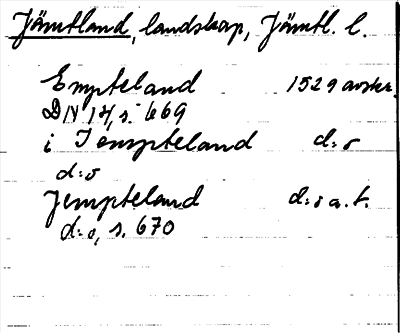 Jämtland, landskap, Jämtl. l.
Empteland 1529 avskr.
DN 14, s. 669
i Jempteland d:o
d:o
Jempteland d:o a.t.
d:o, s. 670